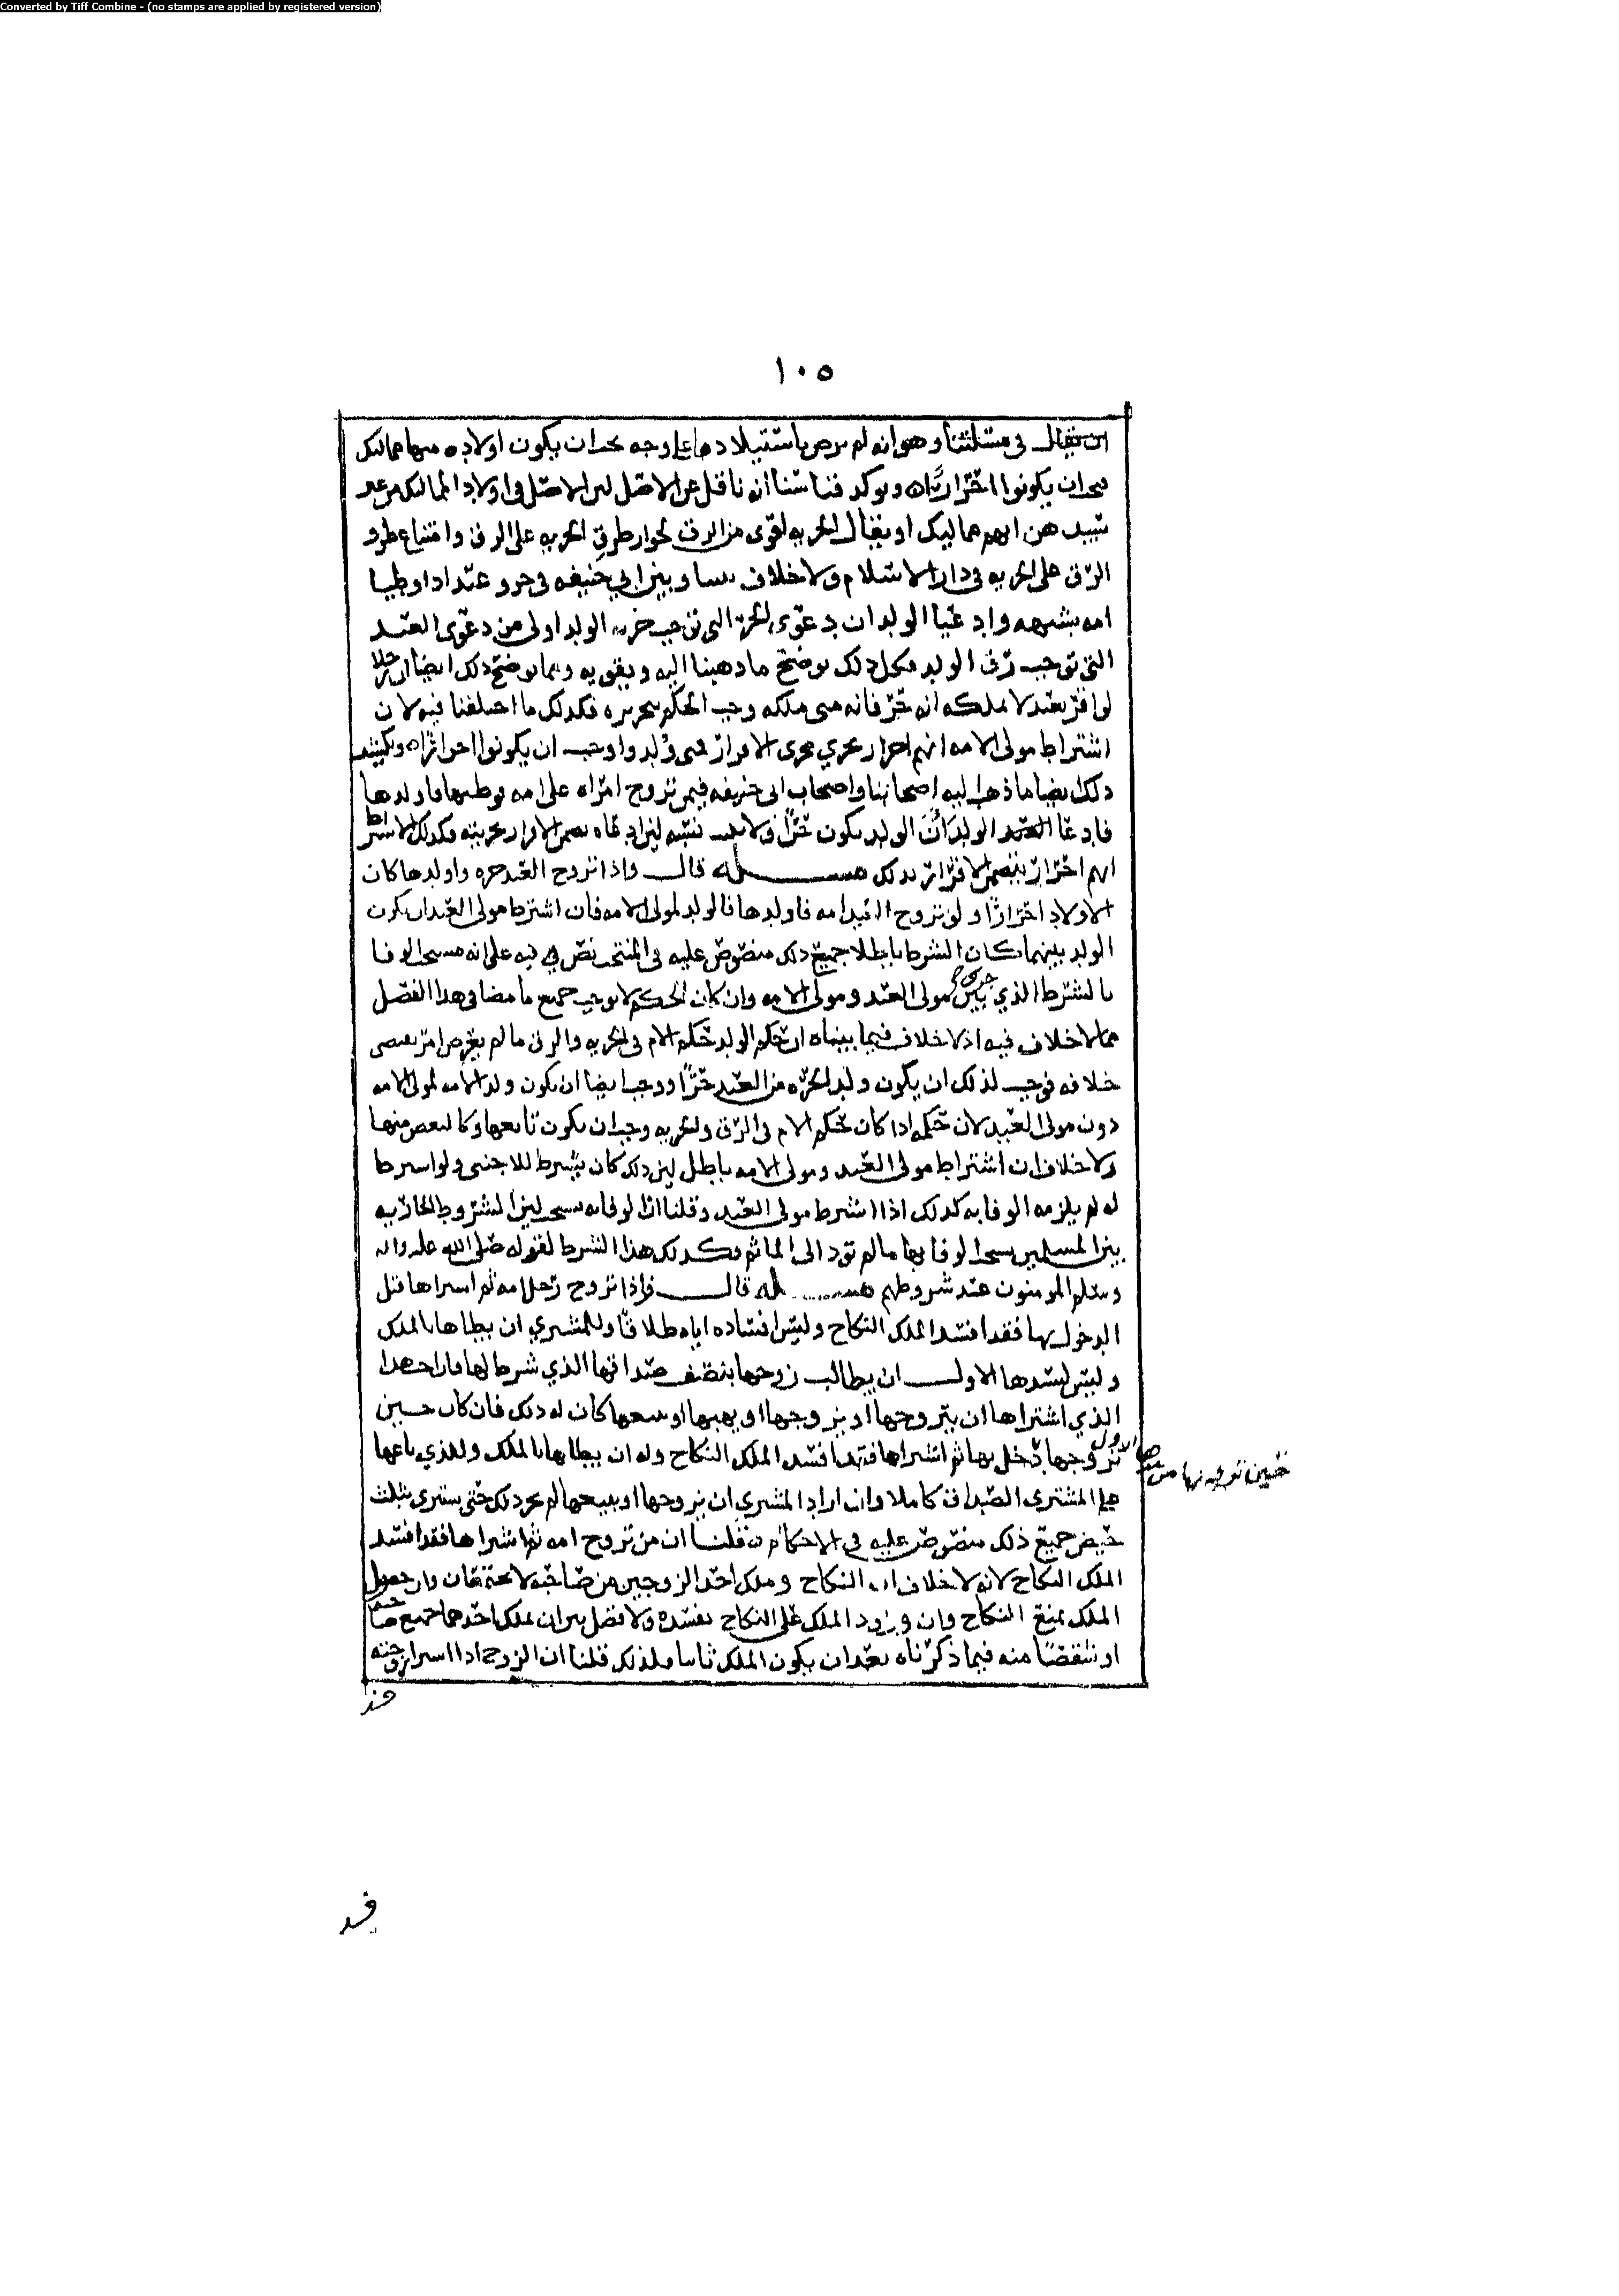 Converted by Tiff Combine - (no stamps are applied by registered version)
١٠٥
ان يقال في مسئلتنا وهو انه لم يرض باستيلادها على وجه يجب ان يكون اولاده منها مماليك
فيجب ان يكونوا احرارا ويوكد قياسنا انه ناقل عن الاصل لان الاصل في اولاد المماليك من غير
سيدهن انهم مماليك او يقال الحريه اقوى من الرق لجواز طرق الحريه على الرق وامتناع طرو
الرق على الحريه في دار الاسلام ولا خلاف بيننا وبين ابي حنيفه في حر وعبد اذا وطيا
امه بشبهه وادعيا الولد ان دعوى الحر التي توجب حريه الولد اولى من دعوى العبد
التي توجب رق الولد فكل ذلك يوضح ما ذهبنا اليه ويقويه ومما يوضح ذلك ايضا ان رجلا
لو اقر بعبد لا يملكه انه حر فانه متى ملكه وجب الحكم بتحريره فكذلك ما اختلفنا فيه لان
اشتراط مولى الامه انهم احرار يجري مجرى الاقرار فمتى ولدوا وجب ان يكونوا احرارا ويكشف
ذلك ايضا ما ذهب اليه اصحابنا واصحاب ابي حنيفه فيمن تزوج امراه على امه فوطيها فاولدها
فادعا العبد الولد ان الولد يكون حرا ولا يثبت نسبه لان ادعاه يضمن الاقرار بحريته وكذلك الاشتراط
انهم احرار يتضمن الاقرار بذلك مسئله قال واذا تزوج العبد حره واولدها كان
الاولاد احرارا ولو تزوج العبد امه فاولدها فالولد لمولى الامه فان اشترط مولى العبد ان يكون
الولد بينهما كان الشرط باطلا جميع ذلك منصوص عليه في المنتخب نص فيه على انه يستحب الوفا
بالشرط الذي جرى بين مولى العبد ومولى الامه وان كان الحكم لا يوجب جميع ما مضا في هذا الفصل
مما لا خلاف فيه اذ لا خلاف فيما بيناه ان حكم الولد حكم الام في الحريه والرق ما لم يعرض امر يقتضي
خلافه فوجب لذلك ان يكون ولد الحره من العبد حرا ووجب ايضا ان يكون ولد الامه لمولى الامه
دون مولى العبد لان حكمه اذا كان حكم الام في الرق والحريه وجب ان يكون تابعها وكالبعض منها
ولا خلاف ان اشتراط مولى العبد ومولى الامه باطل لان ذلك كان يشرط للاجنبي ولو اشرط
له لم يلزمه الوفا به كذلك اذا اشرط مولى العبد وقلنا ان الوفا به يستحب لان الشروط الجاريه
بين المسلمين يستحب الوفا بها ما لم تود الى الماثم فكذلك هذا الشرط لقوله صلى الله عليه واله
وسلم المومنون عند شروطهم مسئله قال واذا تزوج رجل امه ثم اشتراها قبل
الدخول بها فقد افسد الملك النكاح وليس افساده اياه طلاقا وللمشتري ان يطاها بالملك
وليس لسيدها الاول ان يطالب زوجها بنصف صداقها الذي شرط لها فان احب هذا
الذي اشتراها ان يتزوجها او يزوجها او يهبها او يبيعها كان له ذلك فان كان حين
تزوجها دخل بها ثم اشتراها فقد افسد الملك النكاح وله ان يطاها بالملك وللذي باعها
على المشتري الصداق كاملا وان اراد المشتري ان يزوجها او يبيعها لم يجز ذلك حتى يستبري بثلث
حيض جميع ذلك منصوص عليه في الاحكام قلنا ان من تزوج امه ثم اشتراها فقد افسد
الملك النكاح لانه لا خلاف ان النكاح وملك احد الزوجين من صاحبه لا يجتمعان وان حصول
الملك يمنع النكاح وان ورود الملك على النكاح يفسده ولا فصل بين ان يملك احدهما جميع صاحبه
او شقصا منه فيما ذكرناه بعد ان يكون الملك ثابتا فلذلك قلنا ان الزوج اذا اشترا زوجته